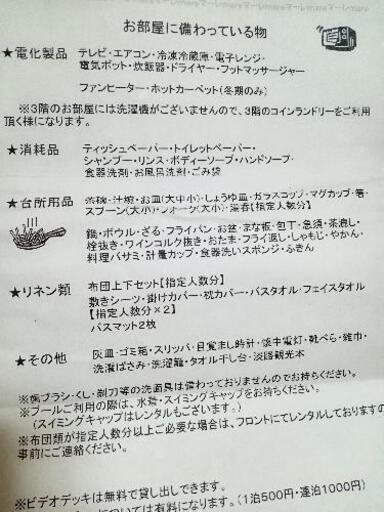 お部屋に備わっている物
★電化製品 テレビ・エアコン・冷凍冷蔵庫・電子レンジ・
電気ポット・炊飯器・ドライヤー・フットマッサージャー
ファンヒーター・ホットカーペット(冬期のみ)
※3階のお部屋には洗濯機がございませんので、3階のコインランドリーをご利用
頂く様になります。
★消耗品 ティッシュペーパー・トイレットペーパー・
シャンプー・リンス・ボディーソープ・ハンドソープ・
食器洗剤・お風呂洗剤・ごみ袋
★台所用品 茶碗・汁椀・お皿(大中小)・しょうゆ皿・ガラスコップ・マグカップ・箸・
スプーン(大小)・フォーク(大小)・湯呑【指定人数分】
鍋・ボウル・ざる・フライパン・お盆・まな板・包丁・急須・茶漉し・
栓抜き・ワインコルク抜き・おたま・フライ返し・しゃもじ・やかん・
料理バサミ・計量カップ・食器洗いスポンジ・ふきん
★リネン類 布団上下セット【指定人数分】
敷きシーツ・掛けカバー・枕カバー・バスタオル・フェイスタオル
【指定人数分×2】
バスマット2枚
★その他 灰皿・ゴミ箱・スリッパ・目覚まし時計・懐中電灯・靴べら・雑巾・
洗濯ばさみ・洗濯籠・タオル干し台・淡路観光本
※歯ブラシ・くし・剃刀等の洗面具は備わっておりませんのでお持ちください。
※プールご利用の際は、水着・スイミングキャップをお持ちください。
(スイミングキャップはレンタルもございます。)
※布団類が指定人数分以上ご必要な場合は、フロントにてレンタルしておりますの
事前にご連絡ください。
※ビデオデッキは無料で貸し出しできます。
については有料になります。(1泊500円・連泊1000円)